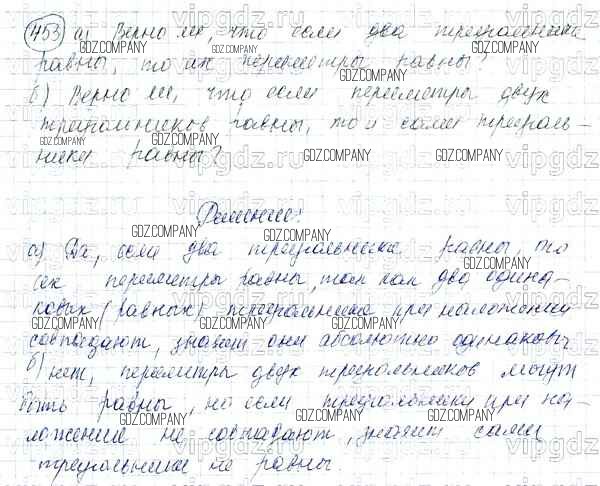 453 а) Верно ли, что если два треугольника
равны, то их периметры равны?
б) Верно ли, что если периметры двух
треугольников равны, то и сами треуголь-
ники равны?
Решение:
а) Да, если два треугольника равны, то
их периметры равны, так как два одина-
ковых (равных) треугольника при наложении
совпадают, значит они абсолютно одинаковы
б) нет, периметры двух треугольников могут
быть равны, но если треугольники при на-
ложение не совпадают, значит сами
треугольники не равны.